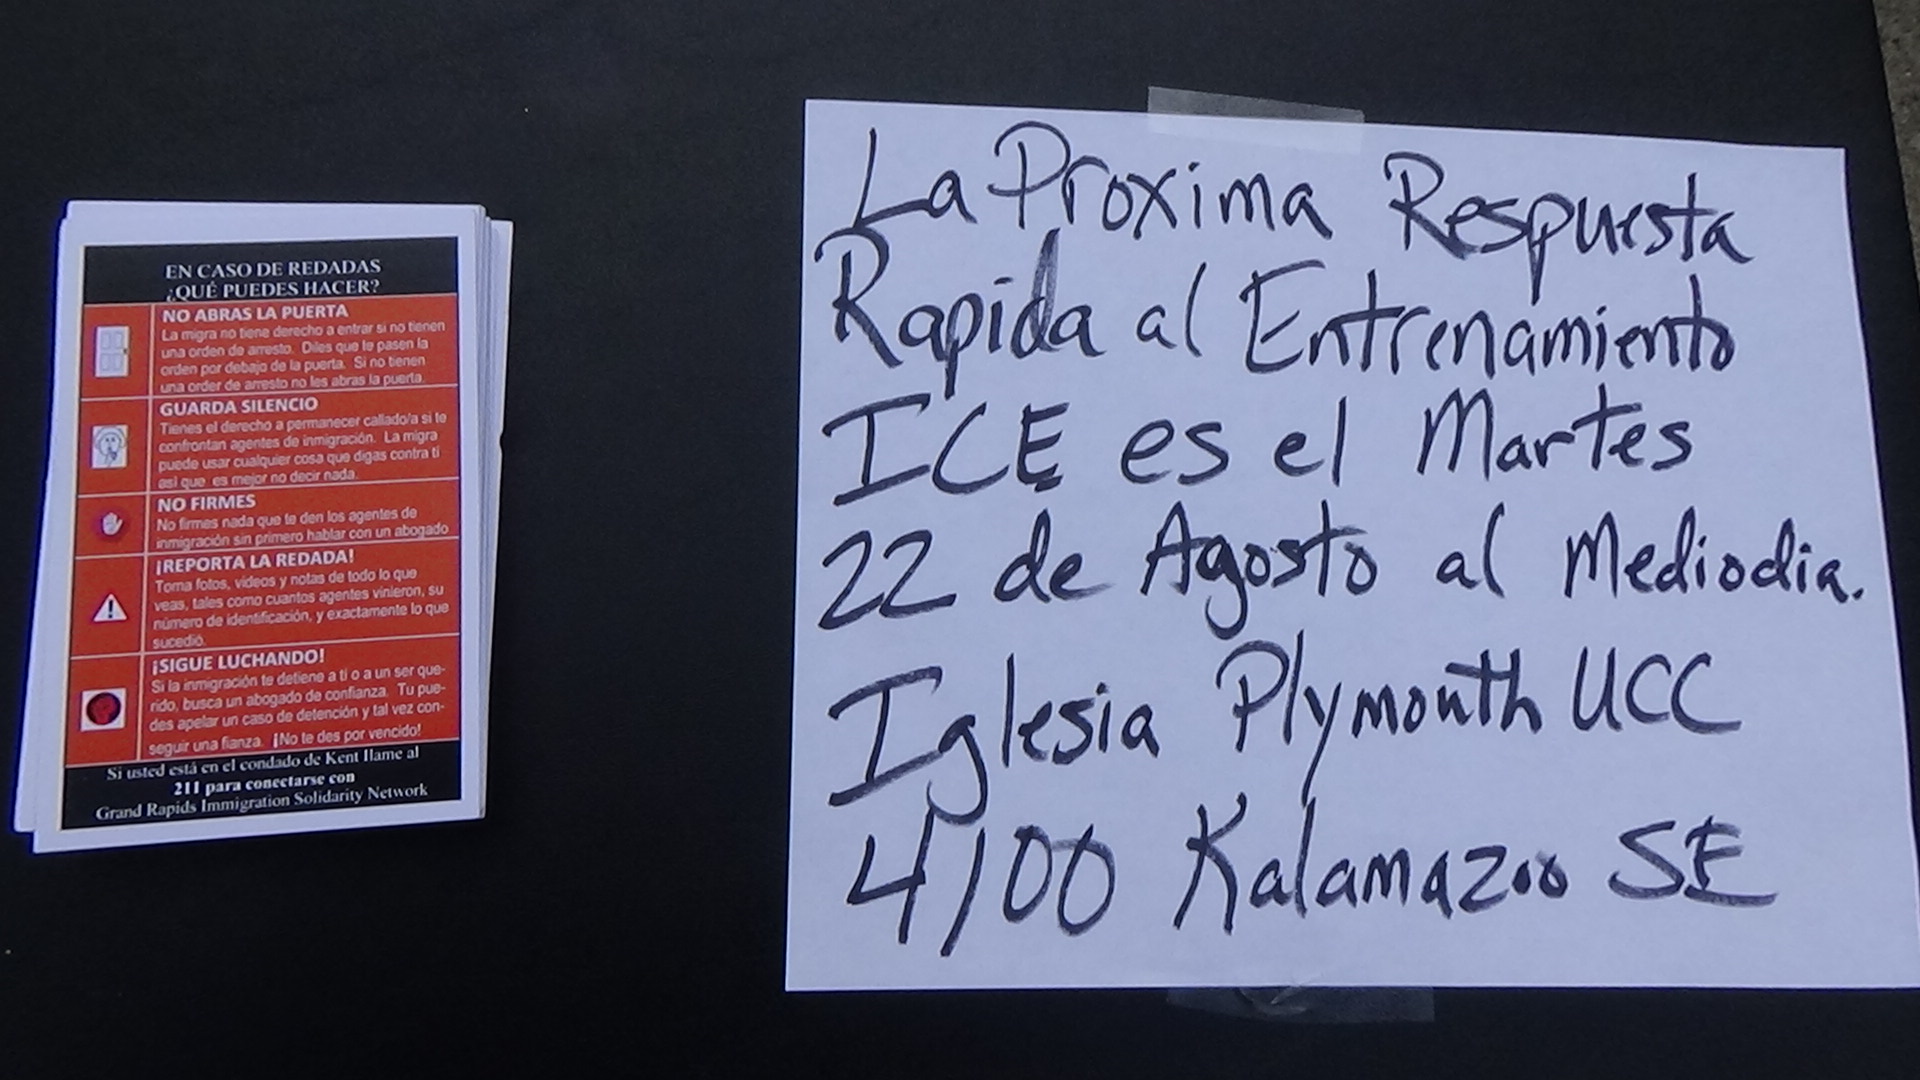 EN CASO DE REDADAS
¿QUÉ PUEDES HACER?
NO ABRAS LA PUERTA
La migra no tiene derecho a entrar si no tienen
una orden de arresto. Diles que te pasen la
orden por debajo de la puerta. Si no tienen
una order de arresto no les abras la puerta.
GUARDA SILENCIO
Tienes el derecho a permanecer callado/a si te
confrontan agentes de inmigración. La migra
puede usar cualquier cosa que digas contra ti
asi que es mejor no decir nada.
NO FIRMES
No firmes nada que te den los agentes de
inmigración sin primero hablar con un abogado
¡REPORTA LA REDADA!
Toma fotos, videos y notas de todo lo que
veas, tales como cuantos agentes vinieron, su
número de identificación, y exactamente lo que
sucedió.
¡SIGUE LUCHANDO!
Si la inmigración te detiene a ti o a un ser que-
rido, busca un abogado de confianza. Tu pue-
des apelar un caso de detención y tal vez con-
seguir una fianza. ¡No te des por vencido!
Si usted está en el condado de Kent llame al
211 para conectarse con
Grand Rapids Immigration Solidarity Network
La Proxima Respuesta
Rapida al Entrenamiento
ICE es el Martes
22 de Agosto al Mediodia.
Iglesia Plymouth UCC
4100 Kalamazoo SE